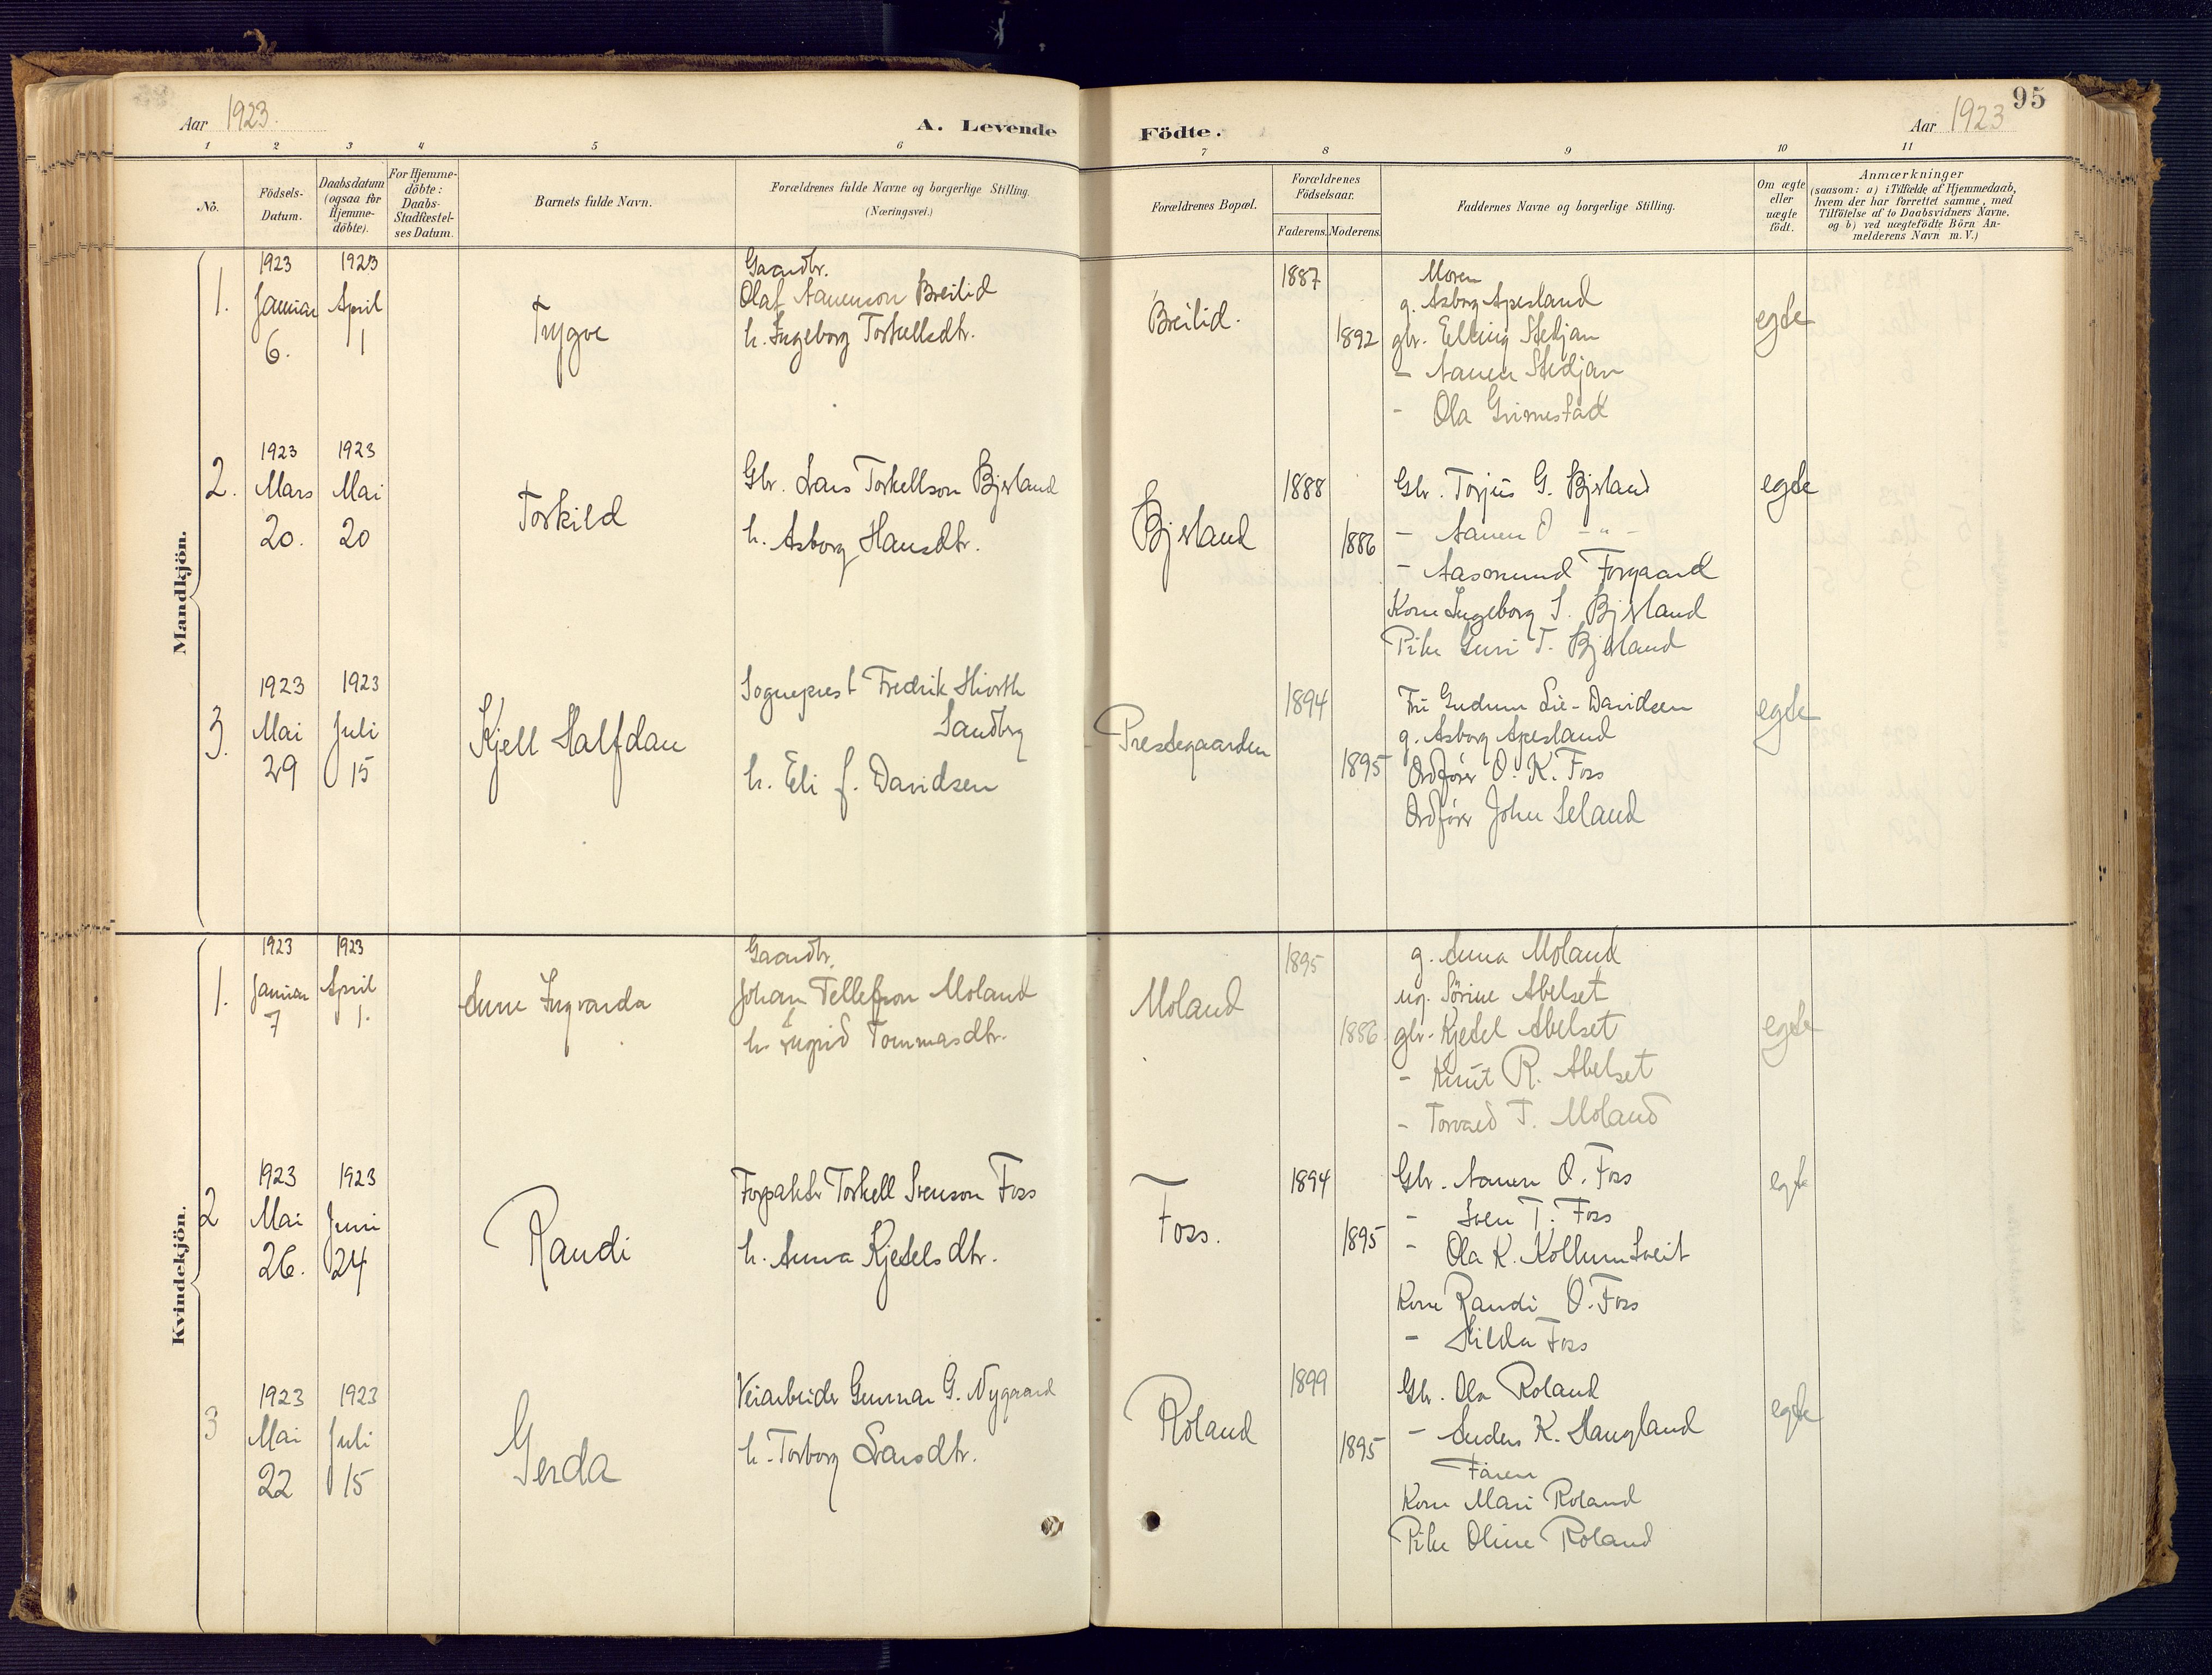 95
Aar 1923. A. Levende Födte. Aar 1923
1 2 3 4 5 6 7 8 9 10 11
No.
Födsels-
Datum.
Daabsdatum
(ogsaa for
Hjemme-
döbte).
For Hjemme-
döbte:
Daabs-
Stadfæstel-
ses Datum.
Barnets fulde Navn.
Forældrenes fulde Navne og borgerlige Stilling.
(Næringsvei.)
Forældrenes Bopæl.
Forældrenes
Födselsaar.
Faderens. Moderens.
Faddernes Navne og borgerlige Stilling.
Om ægte
eller
uægte
födt.
Anmærkninger
(saasom: a) i Tilfælde af Hjemmedaab,
hvem der har forrettet samme, med
Tilföielse af to Daabsvidners Navne.
og b) ved uægtefödte Börn An-
melderens Navn m.V.)
Mandkjön.
1.
1923
Januar
6.
1923
April
1
Trygve
Gaardbr.
Olaf Aanenson Breilid
h. Ingeborg Torkellsdtr.
Breilid.
1887
1892
Moren
g. Asborg Apesland
gbr. Elling Stedjan
- Aanen Stedjan
- Ola Grimestad
egte
2.
1923
Mars
20.
1923
Mai
20
Torkild
Gbr. Lars Torkellson Bjerland
h. Asborg Hansdtr.
Bjerland
1888
1886
Gbr. Torjus G. Bjerland
- Aanen O - " -
- Aasmund Forgaard
Kone Ingeborg T. Bjerland
Pike Guri T. Bjerland
egte
3.
1923
Mai
29
1923
Juli
15
Kjell Halfdan
Sogneprest Fredrik Hiorth
Sandberg
h. Eli f. Davidsen
Prestegaarden
1894
1895
Fru Gudrun Lie-Davidsen
g. Asborg Apesland
Ordfører O. K. Foss
Ordfører John Seland
egte
Kvindekjön.
1.
1923
Januar
7
1923
April
1.
Anne Ingvarda
Gaardbr.
Johan Tellefson Moland
h. Ingrid Tommasdtr.
Moland
1895
1886
g. Anna Moland
ug. Sørine Abelset
gbr. Kjetel Abelset
- Knut R. Abelset
- Torvald T. Moland
egte
2
1923
Mai
26.
1923
Juni
24
Randi
Forpaktr Torkell Svenson Foss
h. Anna Kjetelsdtr.
Foss.
1894
1895
Gbr. Aanen O. Foss
- Sven T. Foss
- Ola K. Kollumtveit
Kone Randi O. Foss
- Hilda Foss
egte
3
1923
Mai
22
1923
Juli
15
Gerda
Veiarbeider Gunnar G. Nygaard
h. Torborg Larsdtr.
Roland
1899
1895
Gbr. Ola Roland
- Anders K. Haugland
Faren
Kone Mari Roland
Pike Oline Roland
egte